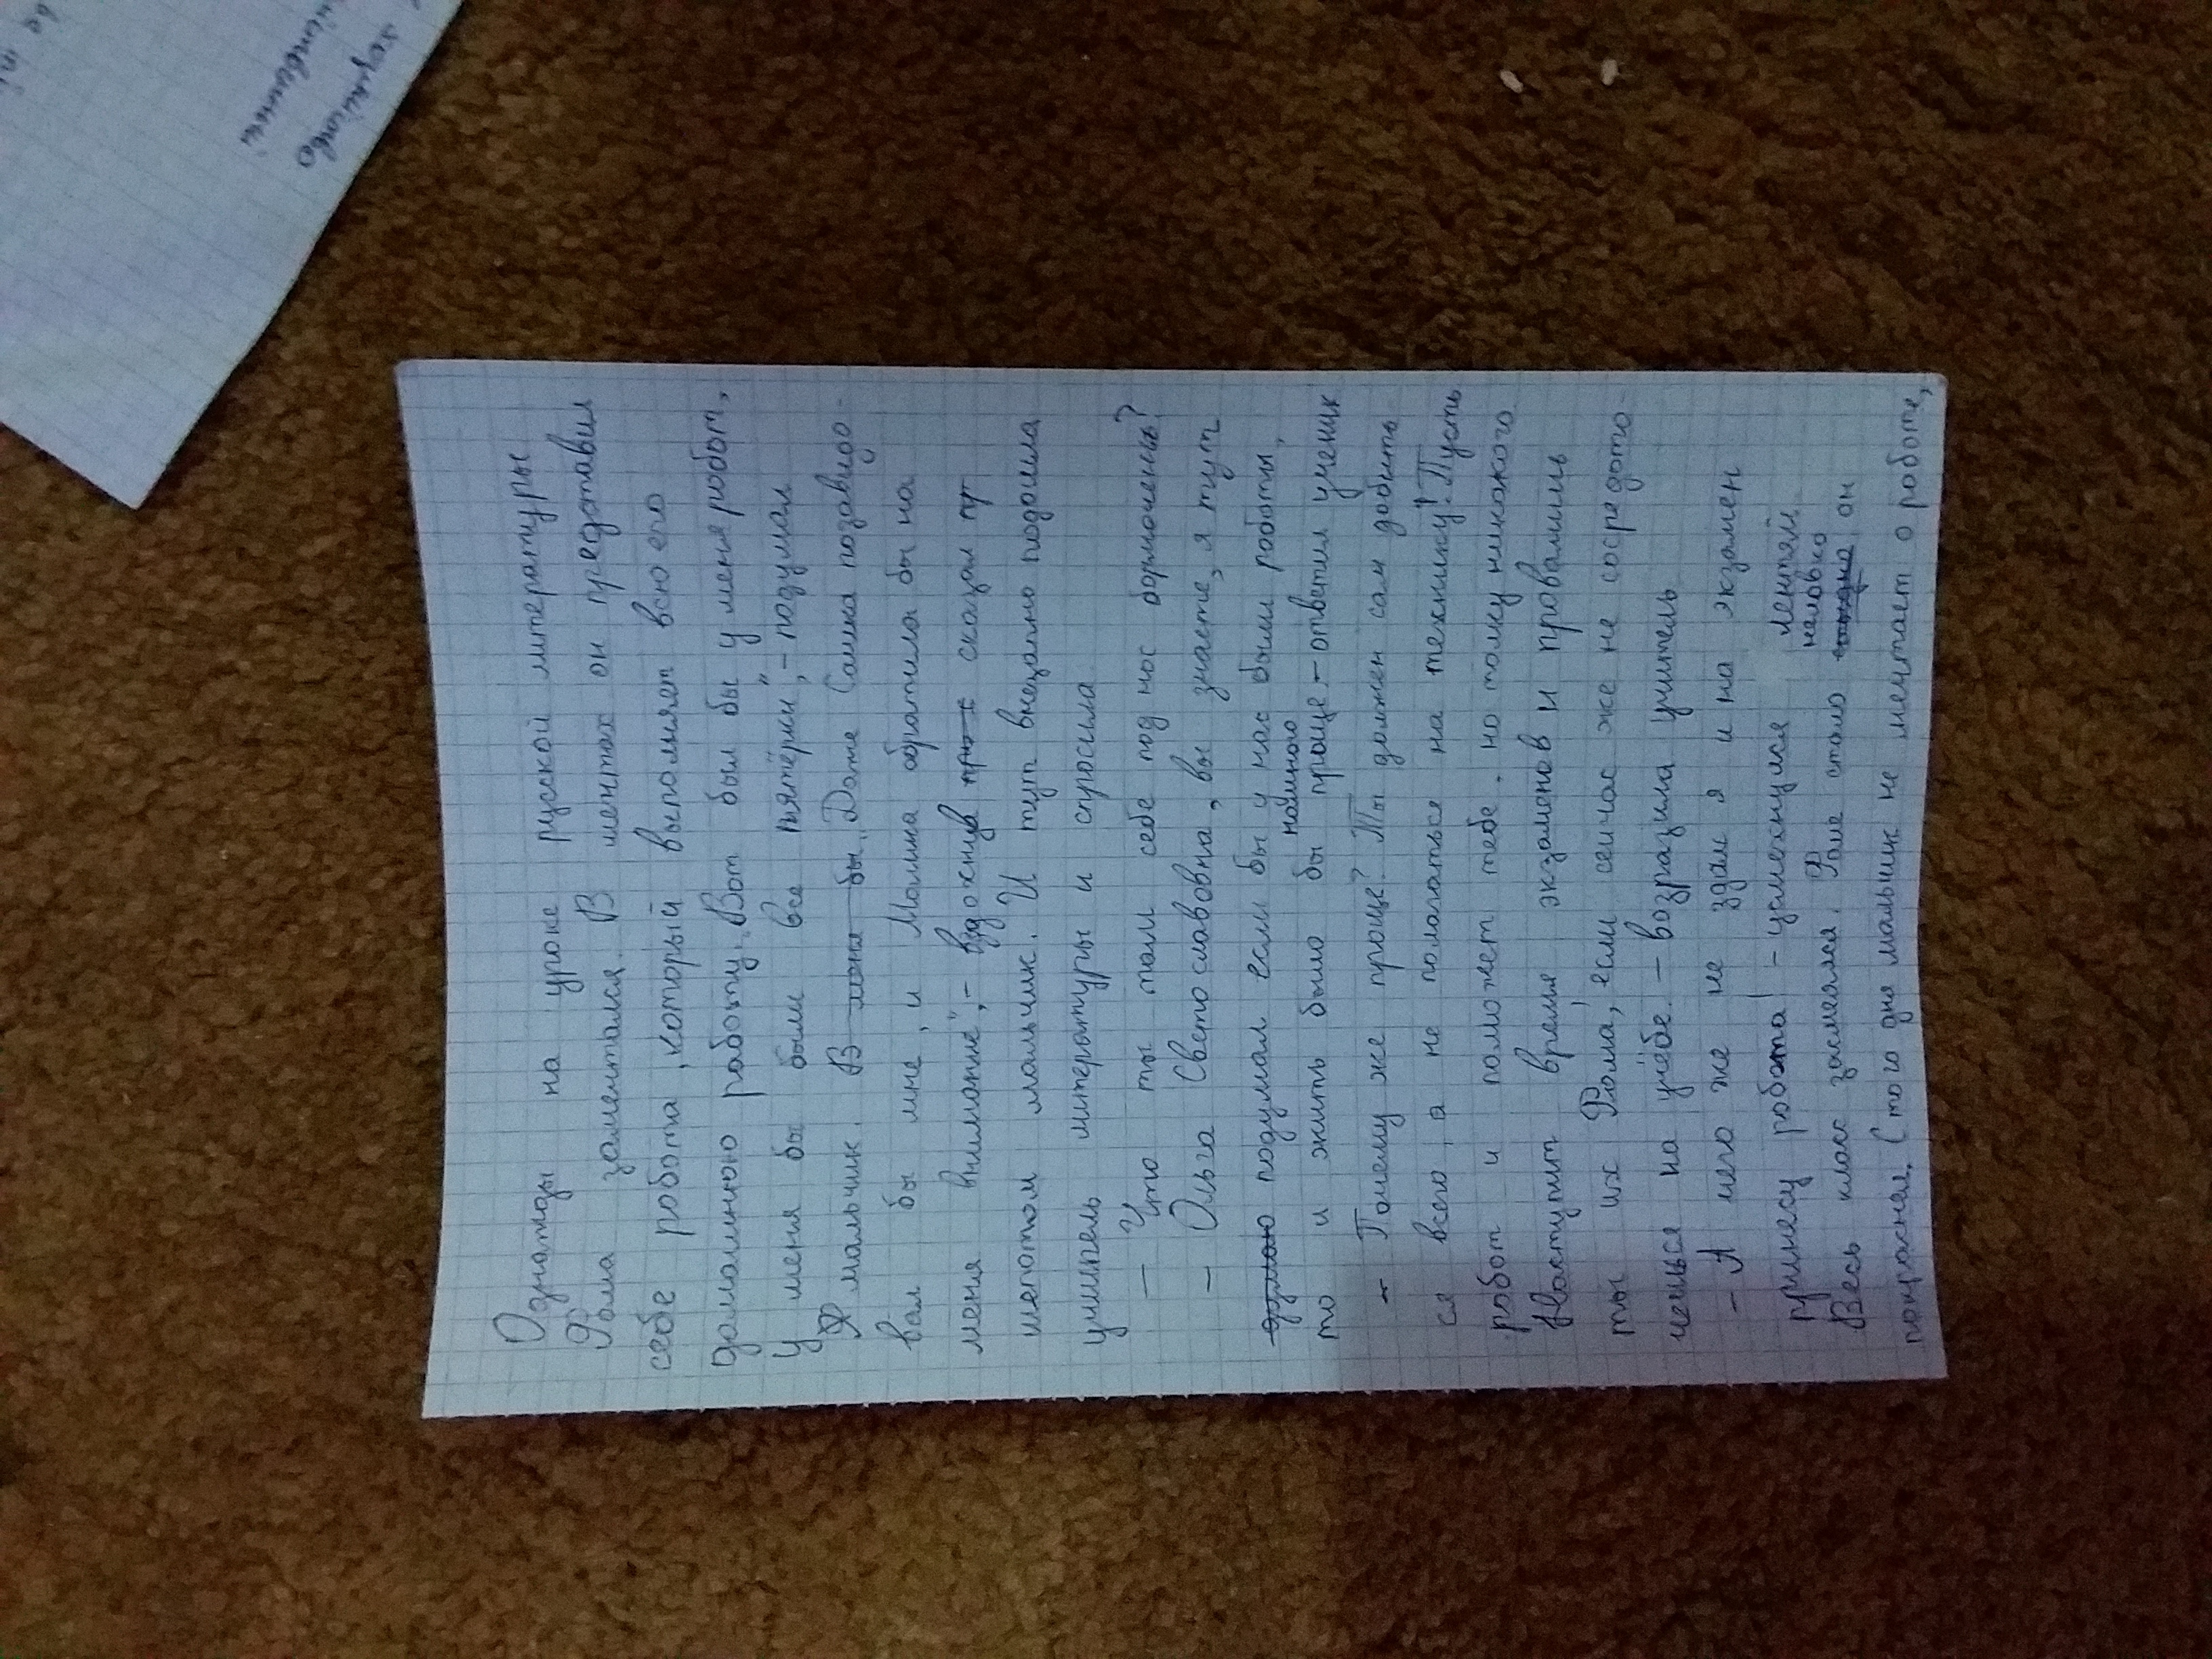 Однажды на уроке руской литературы
Рома замечтался. В мечтах он предствавил
себе робота, который выполняет всю его
домашнюю работу. „Вот был бы у меня робот,
у меня бы были все пятёрки", - подумал
мальчик. В моне бы „Даже Сашка позавидо-
вал бы мне, и Малина обратила бы на
меня внимание", - вздохнув сказал
шепотом мальчик. И тут внезапно подошла
учитель литературы и спросила
- Что ты там себе под нос бормочешь?
- Ольга Светославовна, вы знаете, я тут
думаю подумал если бы у нас были роботы,
то и жить было бы намного проще - ответил ученик
- Почему же проще? Ты должен сам добить-
ся всего, а не полагаться на технику! Пусть
робот и поможет тебе, но толку никакого.
Наступит время экзаменов и провалишь
ты их Рома, если сейчас же не сосредото-
чешься на учёбе. - возразила учитель
- А чего же не здам я и на экзамен
принесу робота! - усмехнулся лентяй.
Весь класс засмеялся. Роме стало неловко он
покраснел. С того дня мальчик не мечтает о роботе,